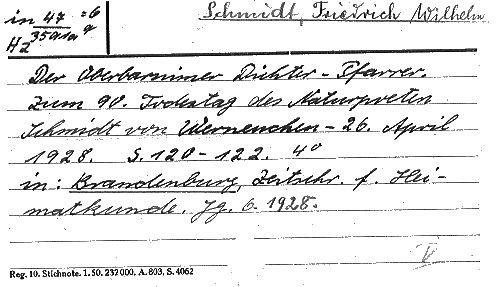 in 47 = 6
HZ 3591a 9
Schmidt, Friedrich Wilhelm
Der Oberbarnimer Dichter-Pfarrer.
Zum 90. Todestag des Naturpoeten
Schmidt von Werneuchen - 26. April
1928. S. 120-122. 4°
in: Brandenburg, Zeitschr. f. Hei-
matkunde. Jg. 6. 1928.
V
Reg. 10. Stichnote. 1. 50. 232 000. A. 803, S. 4062